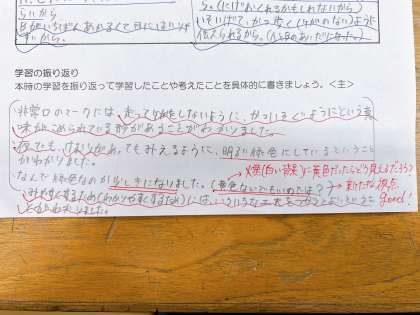 らいから
目がいちばんあかるくて目にはいりやすいから。
5.(にげおくれるかもしれないから)
いそいげて、かつ歩く(けがのない)ように
伝えられるから。(AとBのあいだになった。)
学習の振り返り
本時の学習を振り返って学習したことや考えたことを具体的に書きましょう。<主>
非常口のマークには、走ってけがをしないように、かついそぐようにという意
味がこめられている形があることがわかりました。
夜でも、けむりがあってもみえるように、明るい緑色にしているということ
がわかりました。
→煙(白い背景)に黄色だったらどう見えるだろう?
なんで緑色なのか少しきになりました。(黄色ないでもいめたは?)→新たな視点
みやすくするため(わかりやすくするため)には、いろいろな工夫をつかうとよいという
good!
こともわかりました。